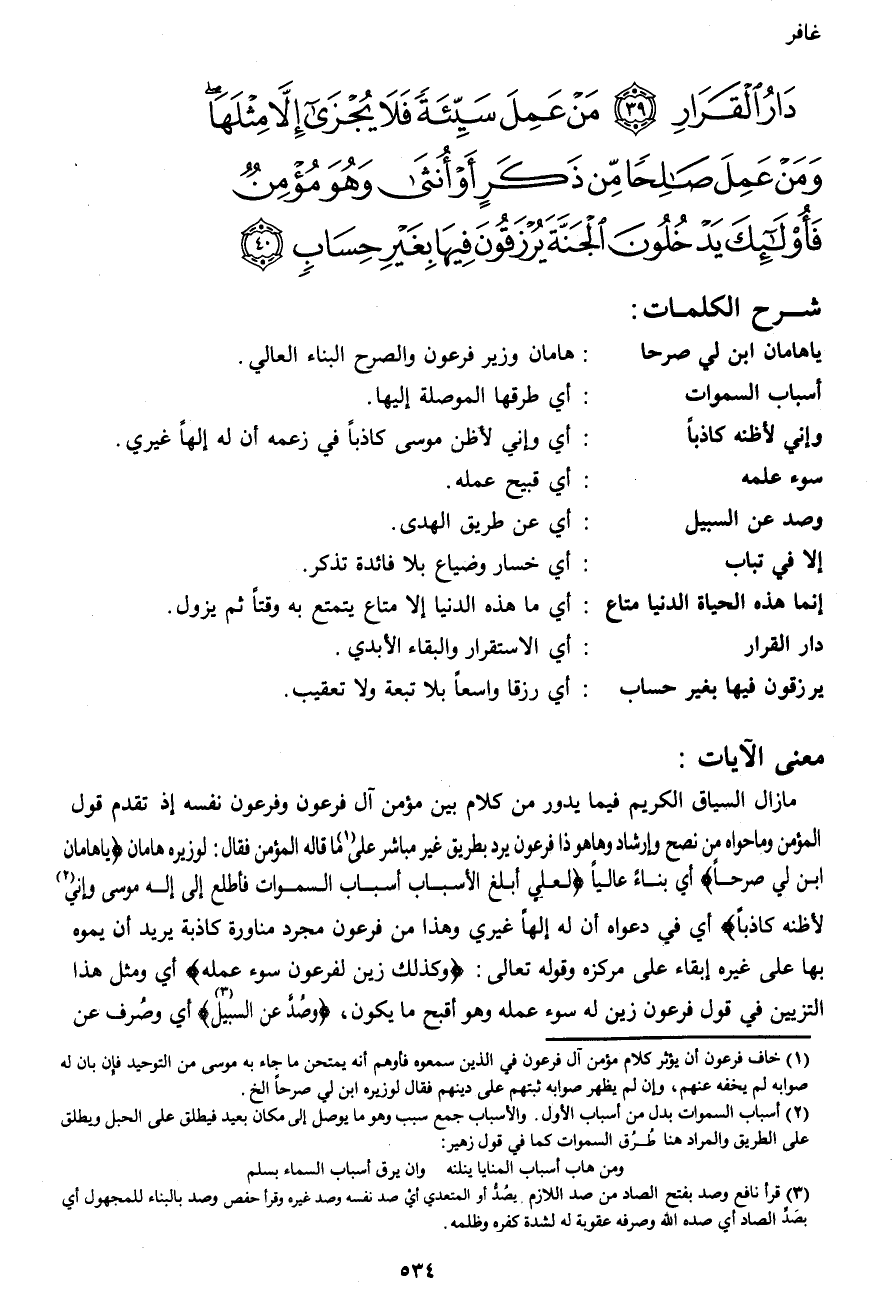 غافر
دَارُ ٱلْقَرَارِ ﴿٣٩﴾ مَنْ عَمِلَ سَيِّئَةً فَلَا يُجْزَىٰٓ إِلَّا مِثْلَهَا ۖ
وَمَنْ عَمِلَ صَٰلِحًا مِّن ذَكَرٍ أَوْ أُنثَىٰ وَهُوَ مُؤْمِنٌ
فَأُو۟لَٰٓئِكَ يَدْخُلُونَ ٱلْجَنَّةَ يُرْزَقُونَ فِيهَا بِغَيْرِ حِسَابٍ ﴿٤٠﴾
شـرح الكلمـات :
ياهامان ابن لي صرحا : هامان وزير فرعون والصرح البناء العالي .
أسباب السموات : أي طرقها الموصلة إليها.
وإني لأظنه كاذباً : أي وإني لأظن موسى كاذباً في زعمه أن له إلهاً غيري .
سوء علمه : أي قبيح عمله .
وصد عن السبيل : أي عن طريق الهدى .
إلا في تباب : أي خسار وضياع بلا فائدة تذكر .
إنما هذه الحياة الدنيا متاع : أي ما هذه الدنيا إلا متاع يتمتع به وقتاً ثم يزول .
دار القرار : أي الاستقرار والبقاء الأبدي .
يرزقون فيها بغير حساب : أي رزقا واسعاً بلا تبعة ولا تعقيب .
معنى الآيات :
مازال السياق الكريم فيما يدور من كلام بين مؤمن آل فرعون وفرعون نفسه إذ تقدم قول
المؤمن وماحواه من نصح وإرشاد وهاهو ذا فرعون يرد بطريق غير مباشر على(١) ما قاله المؤمن فقال : لوزيره هامان ﴿ياهامان
ابن لي صرحـاً﴾ أي بنـاءً عالياً ﴿لعـلي أبلغ الأسبـاب أسبـاب السمـوات فأطلع إلى إلـه موسى وإني(٢)
لأظنه كاذباً﴾ أي في دعواه أن له إلهاً غيري وهذا من فرعون مجرد مناورة كاذبة يريد أن يموه
بها على غيره إبقاء على مركزه وقوله تعالى : ﴿وكذلك زين لفرعون سوء عمله﴾ أي ومثل هذا
التزيين في قول فرعون زين له سوء عمله وهو أقبح ما يكون، ﴿وصُدَّ عن السبيل(٣)﴾ أي وصُرف عن
(١) خاف فرعون أن يؤثر كلام مؤمن آل فرعون في الذين سمعوه فأوهم أنه يمتحن ما جاء به موسى من التوحيد فإن بان له
صوابه لم يخفه عنهم، وإن لم يظهر صوابه ثبتهم على دينهم فقال لوزيره ابن لي صرحاً الخ .
(٢) أسباب السموات بدل من أسباب الأول . والأسباب جمع سبب وهو ما يوصل إلى مكان بعيد فيطلق على الحبل ويطلق
على الطريق والمراد هنا طُـرُق السموات كما في قول زهير :
ومن هاب أسباب المنايا ينلنه وان يرق أسباب السماء بسلم
(٣) قرأ نافع وصد بفتح الصاد من صد اللازم يصُدُّ أو المتعدي أيْ صد نفسه وصد غيره وقرأ حفص وصد بالبناء للمجهول أي
بصَدِّ الصاد أي صده الله وصرفه عقوبة له لشدة كفره وظلمه .
٥٣٤